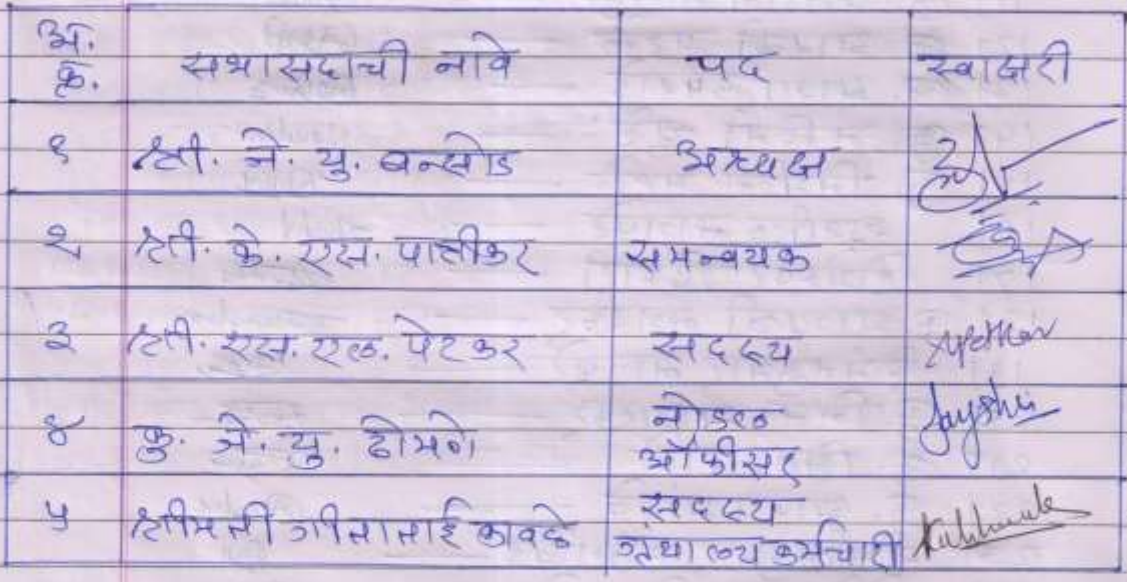 अ.
क्र. सभासदाची नावे पद स्वाक्षरी
१ श्री. जे. यु. बन्सोड अध्यक्ष
२ श्री. के. एस. पातीकर समन्वयक
३ श्री. एस. एल. पेटकर सदस्य
४ कु. जे. यु. ढोमणे नोडल Jayshri
ऑफीसर
५ श्रीमती गीताताई कावळे सदस्य
ग्रंथालय कर्मचारी